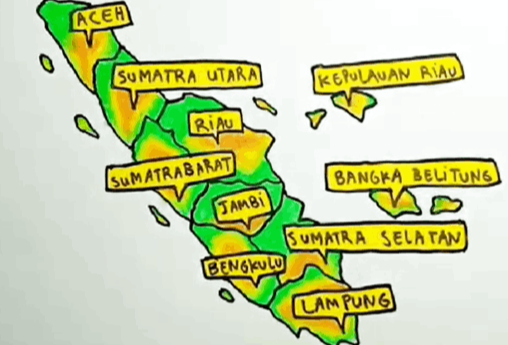 ACEH
SUMATRA UTARA
KEPULAUAN RiAU
RiAU
SUMATRABARAT
BANGKA BELITUNG
JAMBi
SUMATRA SELATAN
BENGKULU
LAMPUNG